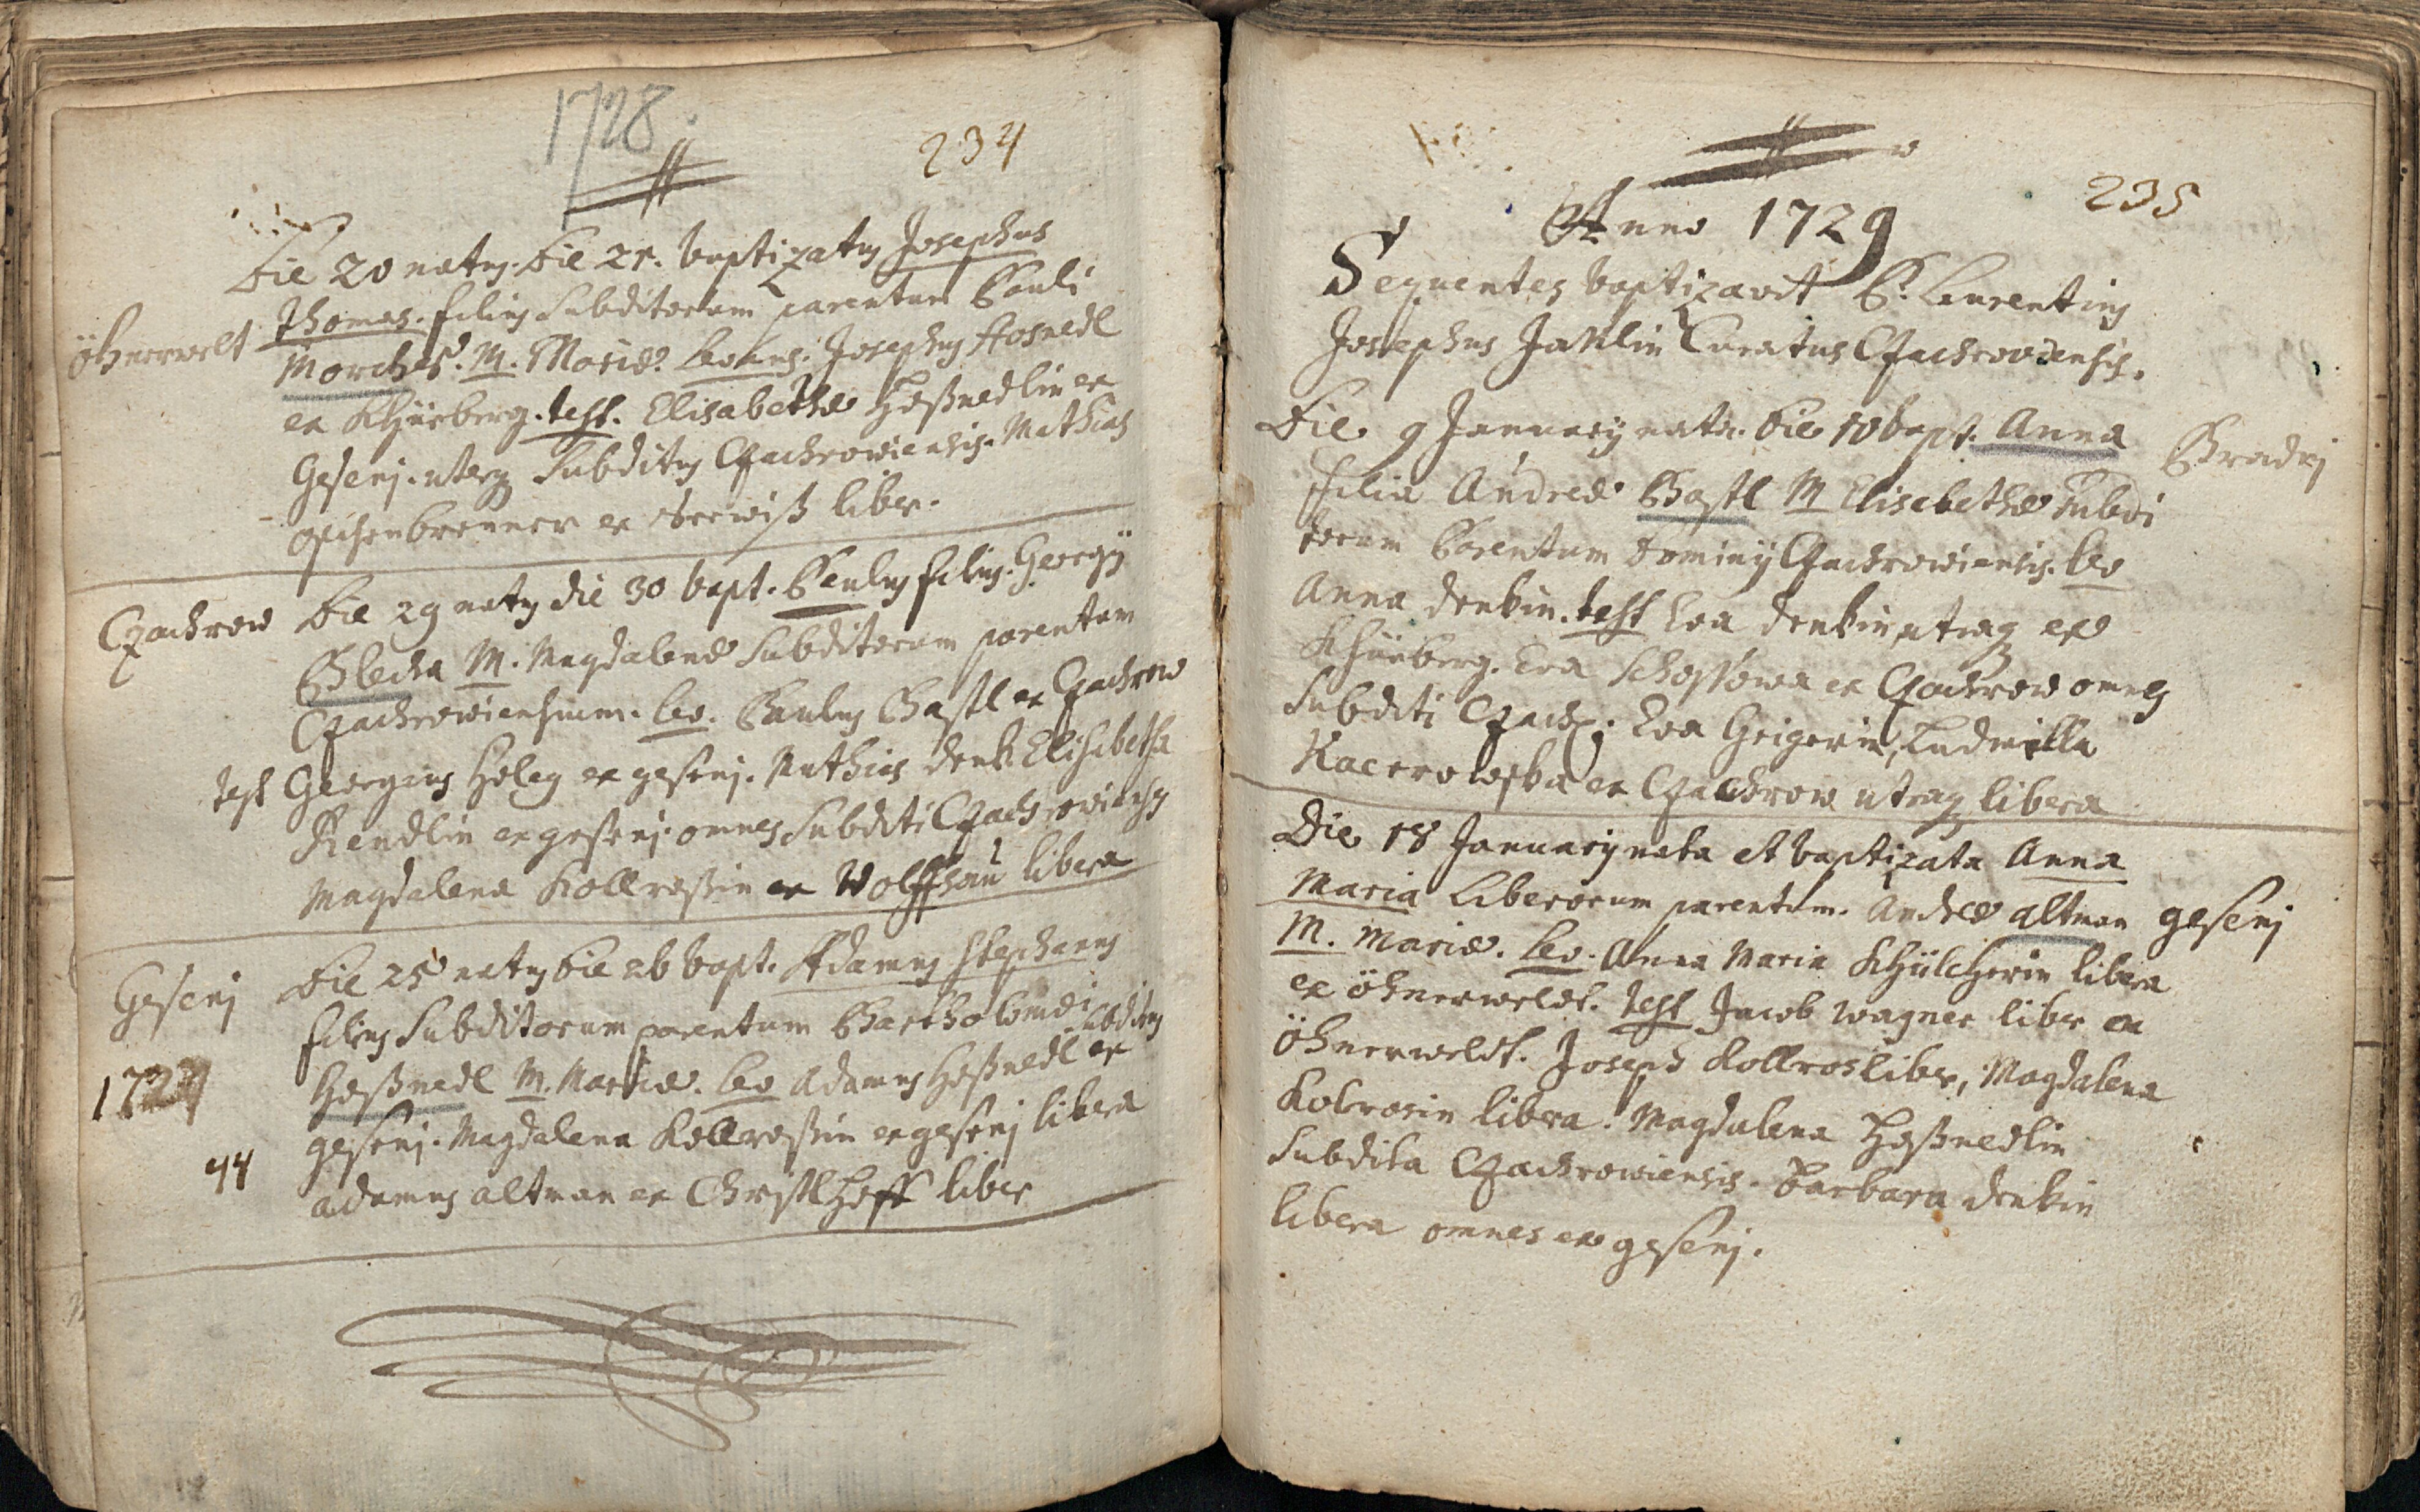 1728.
234
Die 20 natus. Die 21. baptizatus Josephus
öhnerwelt Thomas. filius Subditorum parentum Pauli
Morches. M. Mariæ. Levans. Josephus Hosnedl
ex Khürberg. test. Elisabetha Hoßnedlin ex
Gesenj. uterq Subditus Czachrowiensis. Mathias
oschenbrenner ex oberwiß liber.
Czachrow Die 29 natus die 30 bapt. Paulus filius. Georgij
Blecha M. Magdalenæ Subditorum parentum
Czachrowiensium. lev. Paulus Bastl ex Czachrow
test Georgius Heleg ex gesenj. Mathias denk Elisabetha
Rendlin ex gesenj. omnes Subditi Czachrowiensis
Magdalena Kollroßin ex Wolffhau libera
Gesenj Die 25 natus die 26 bapt. Adamus Stephanus
filius Subditorum parentum Bartholomæi
Hoßnedl M. Mariæ. lev Adamus Hoßnedl ex subditus
gesenj. Magdalena Kollroßin ex gesenj libera
adamus altman ex Christlhoff liber
44
235
Anno 1729
Sequentes baptizavit P. Laurentius
Josephus Curatus Czachroviensis.
Die 9 Januarij nata. Die 10 bapt. Anna Bradej
filia Andreæ Bastl M Elisabethæ Subdi
torum Parentum Dominij Czachrowiensis. lev
Anna denkin. test Eva denkin utraq ex
Khürberg. Eva Schoßowa ex Czachrow omnes
Subditi Czach: Eva Geigerin, Ludmilla
Kacerowska ex Czachrow utraq libera
Die 18 Januarij nata et baptizata Anna
Maria Liberorum parentum. Andreæ altman gesenj
M. Mariæ. lev. Anna Maria Khülcherin libera
ex öhnerweldt. test Jacob Wagner liber ex
öhnerweldt. Joseph Kollros liber, Magdalena
Kolrosin libera. Magdalena Hoßnedlin
Subdita Czachrowiensis. Barbara denkin
libera omnes ex gesenj.